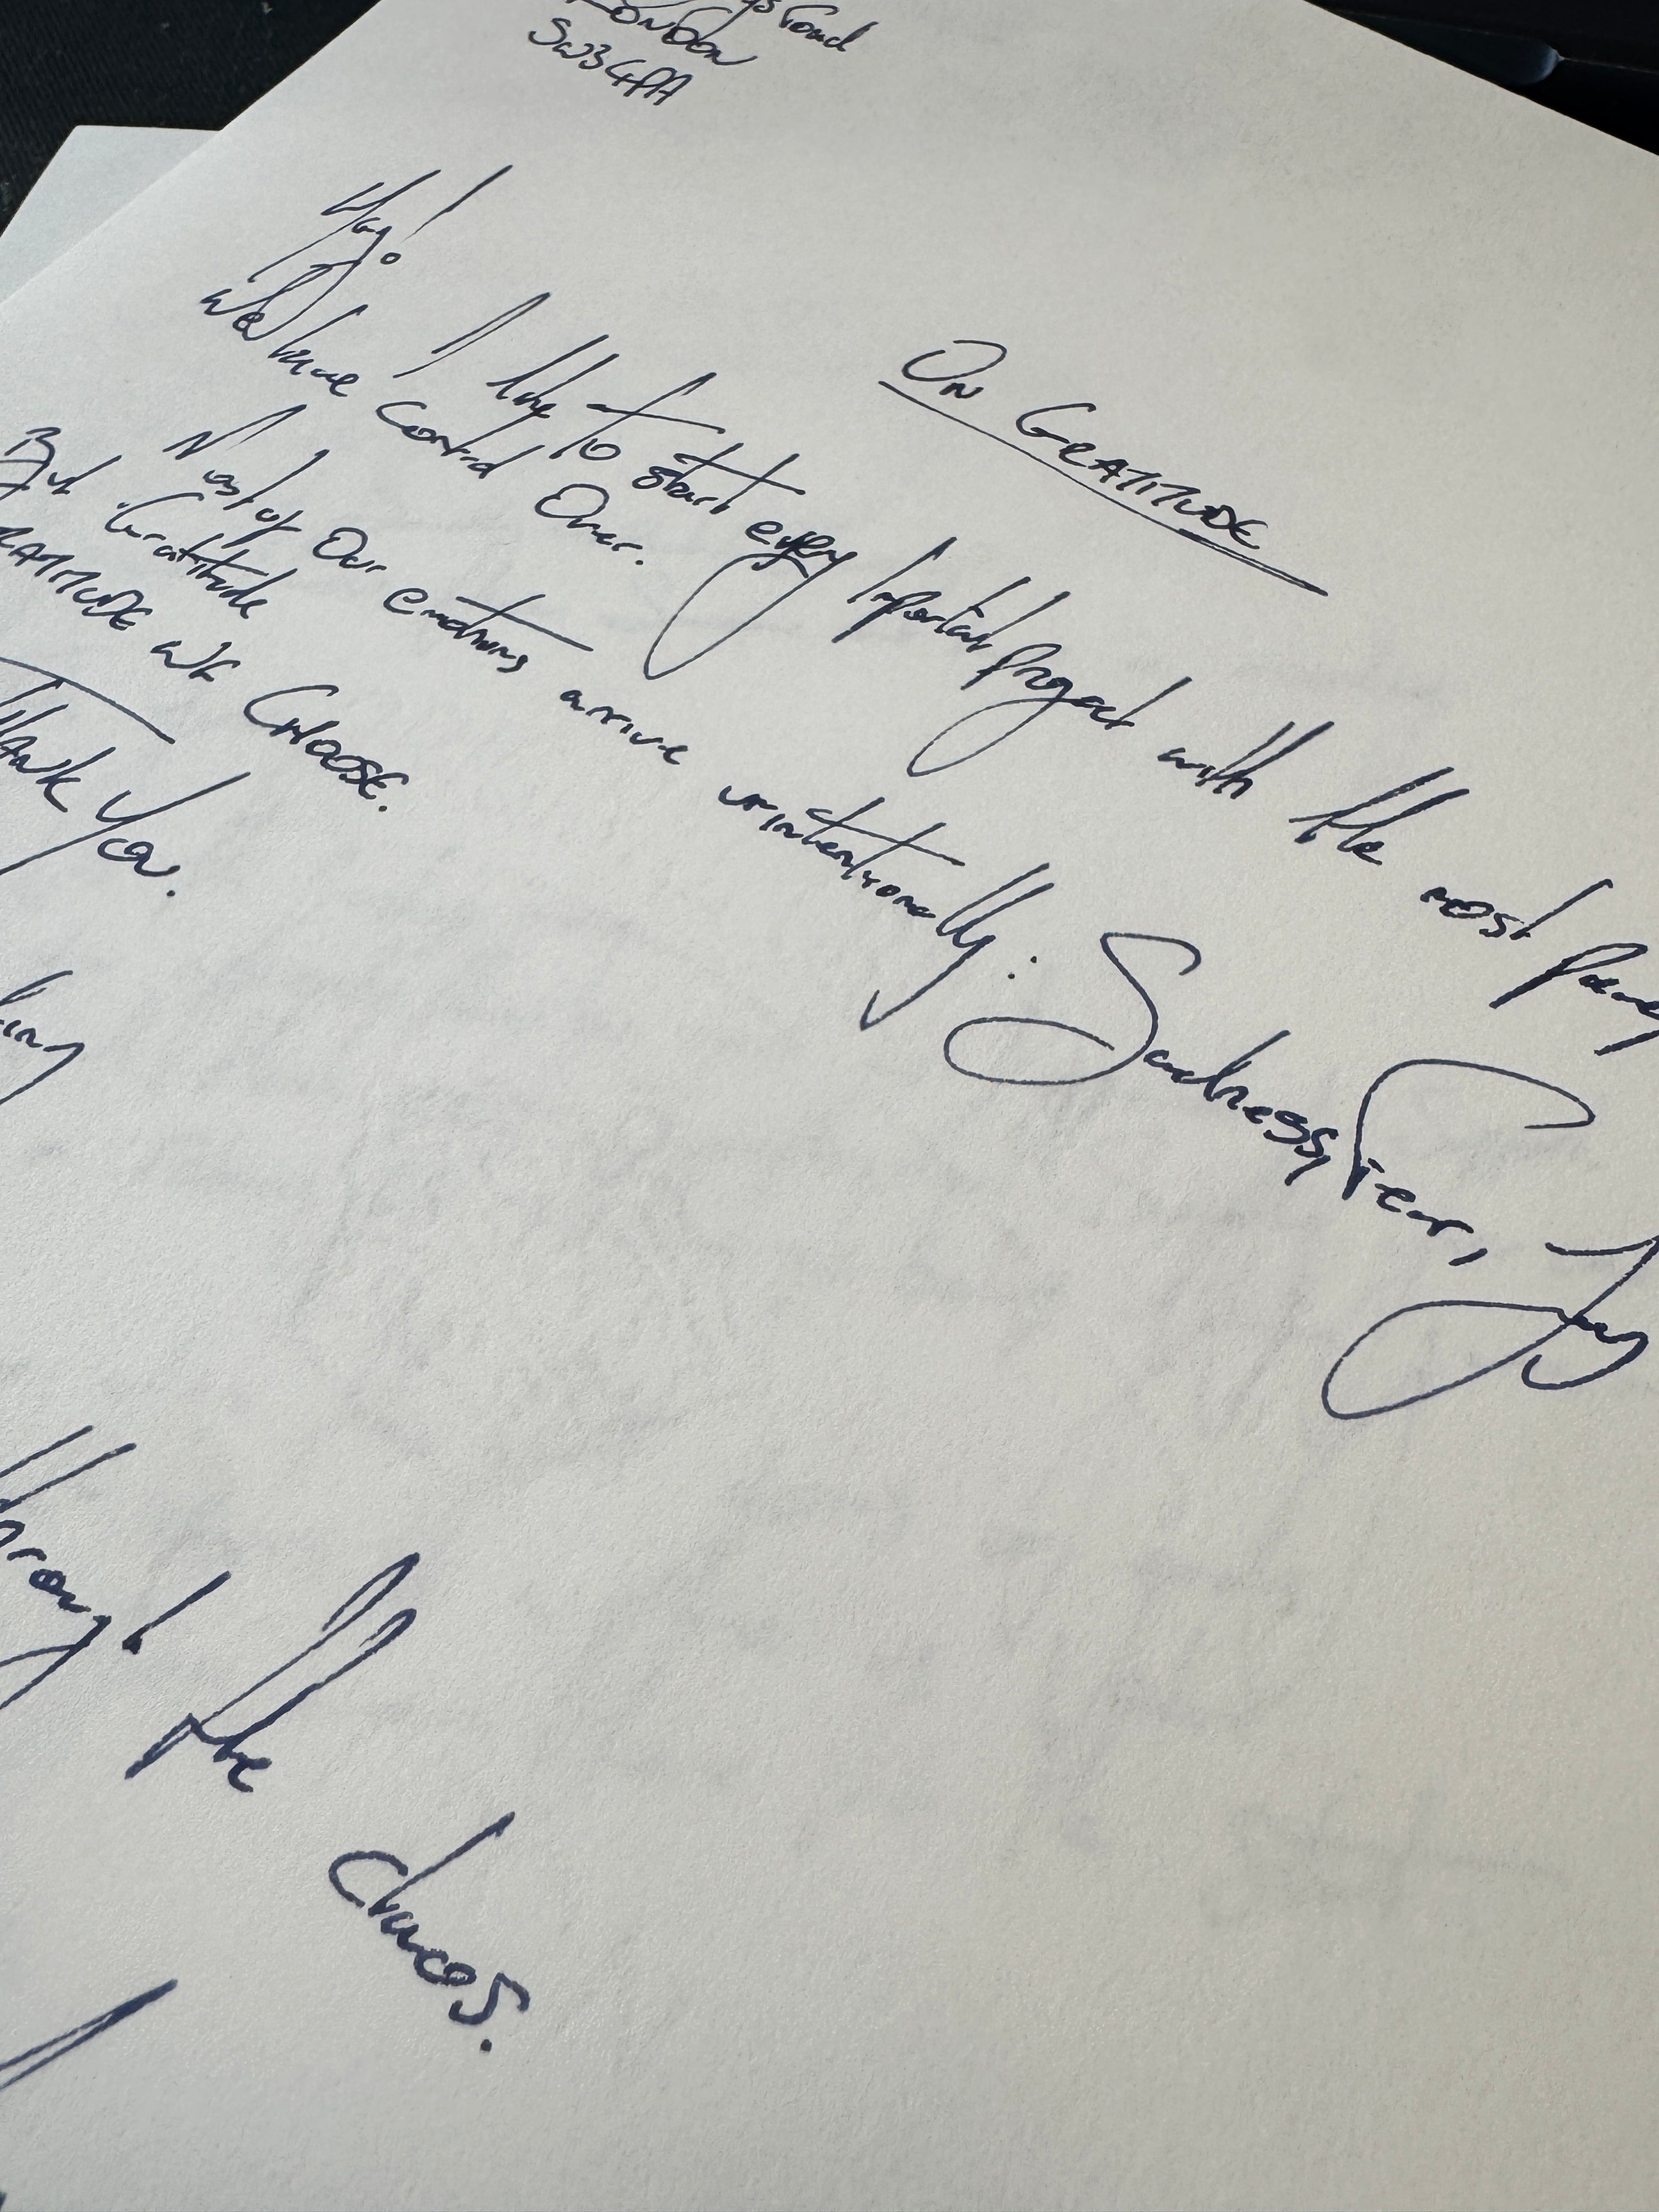 London
SW3 4AA
Hey!
On GRATITUDE
I like to start every important project with the most
We have control Over.
Most of Our emotions arrive unintentionally: Sadness, Fear, Joy
But Gratitude
WE CHOOSE.
You.
the chaos.